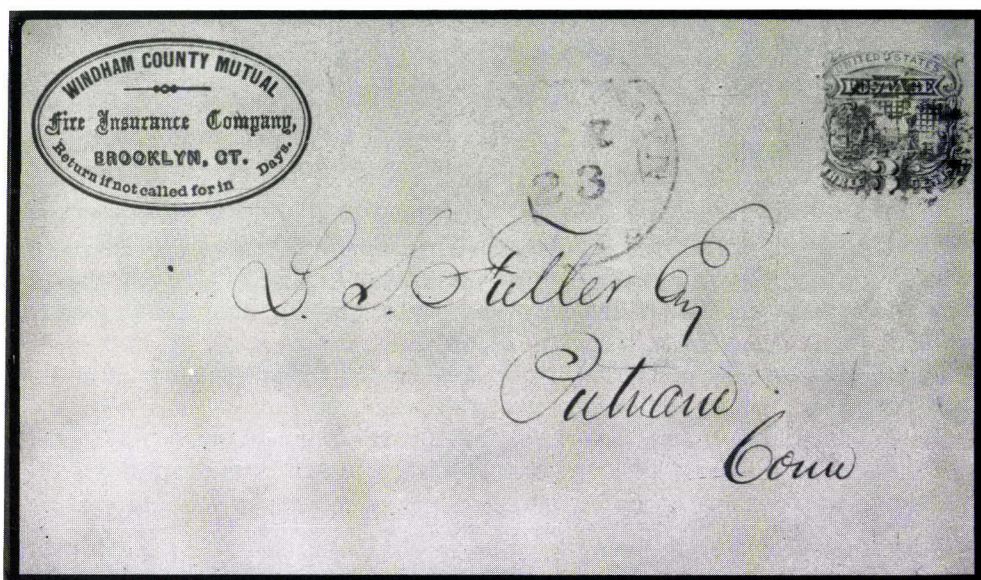 WINDHAM COUNTY MUTUAL
Fire Insurance Company,
BROOKLYN, CT.
Return if not called for in Days.
23
UNITED STATES
POSTAGE
3
L. S. Fuller Esq
Putnam
Conn